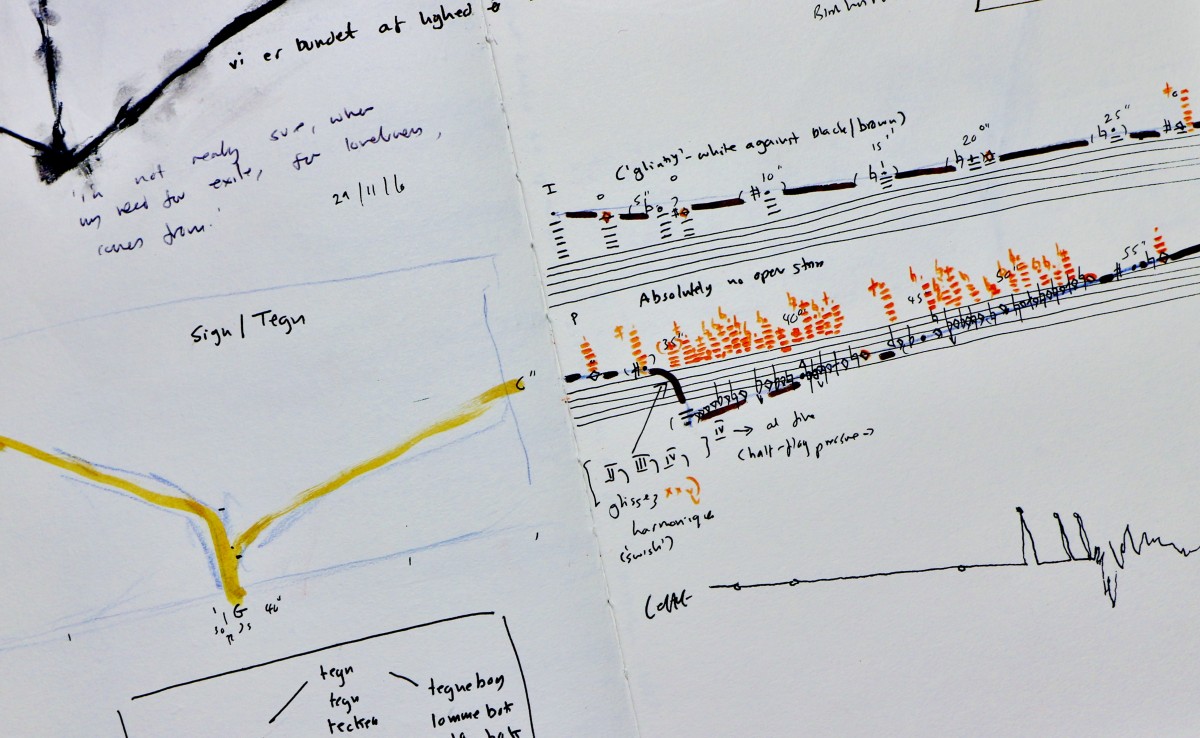 vi er bundet af lighed
'i'm not really sure, when
my need for exile, for loneliness,
comes from.'
29/11/16
Sign / Tegn
C"
G 40"
tegn
tegn
tecken
tegnebog
lommebok
I
('glimty'- white against black/brown)
0
5"
0
10"
15"
20"
25"
P
Absolutely no open strings
35"
40"
45
50"
55"
II, III, IV,
IV → al fine
(half-flag pressure →)
gliss
harmonique
('swish')